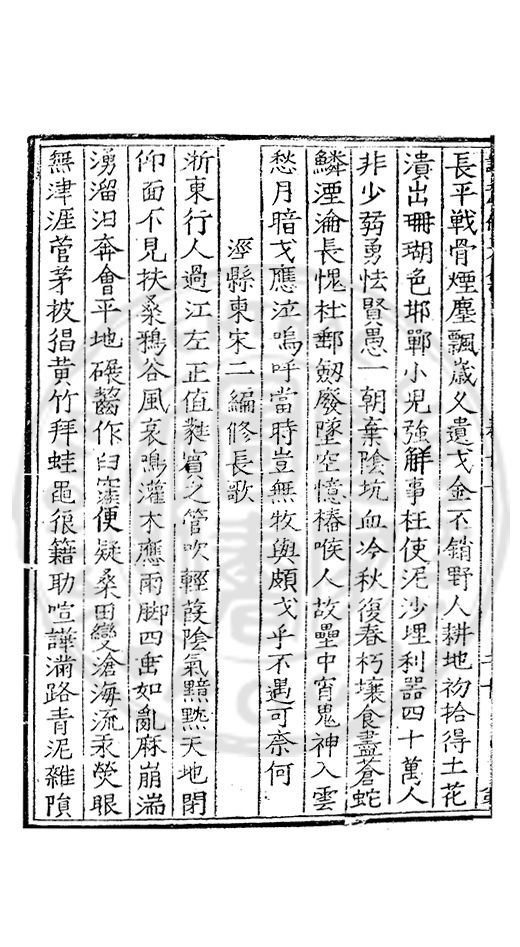 長平戰骨煙塵飄歲久遺戈金不銷野人耕地初拾得土花
漬出珊瑚色邯鄲小兒強解事枉使泥沙埋利器四十萬人
非少弱勇怯賢愚一朝棄陰坑血冷秋復春朽壤食盡蒼蛇
鱗湮淪長愧杜郵劒廢墜空憶樁喉人故壘中宵鬼神入雲
愁月暗戈應泣嗚呼當時豈無牧與頗戈乎不遇可奈何
涇縣柬宋二編修長歌
淅東行人過江左正值蕤賓之管吹輕葭陰氣黯黮天地閉
仰面不見扶桑鴉谷風哀鳴灌木應雨脚四垂如亂麻崩湍
湧溜汨奔會平地碾齾作臼窪便疑桑田變滄海流汞熒眼
無津涯菅茅披猖黃竹拜蛙黽很籍助喧譁滿路青泥雜隕